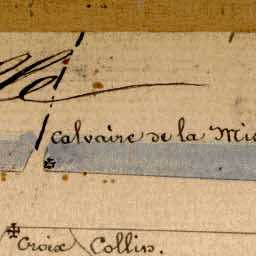 Calvaire de la
Croix Collin.